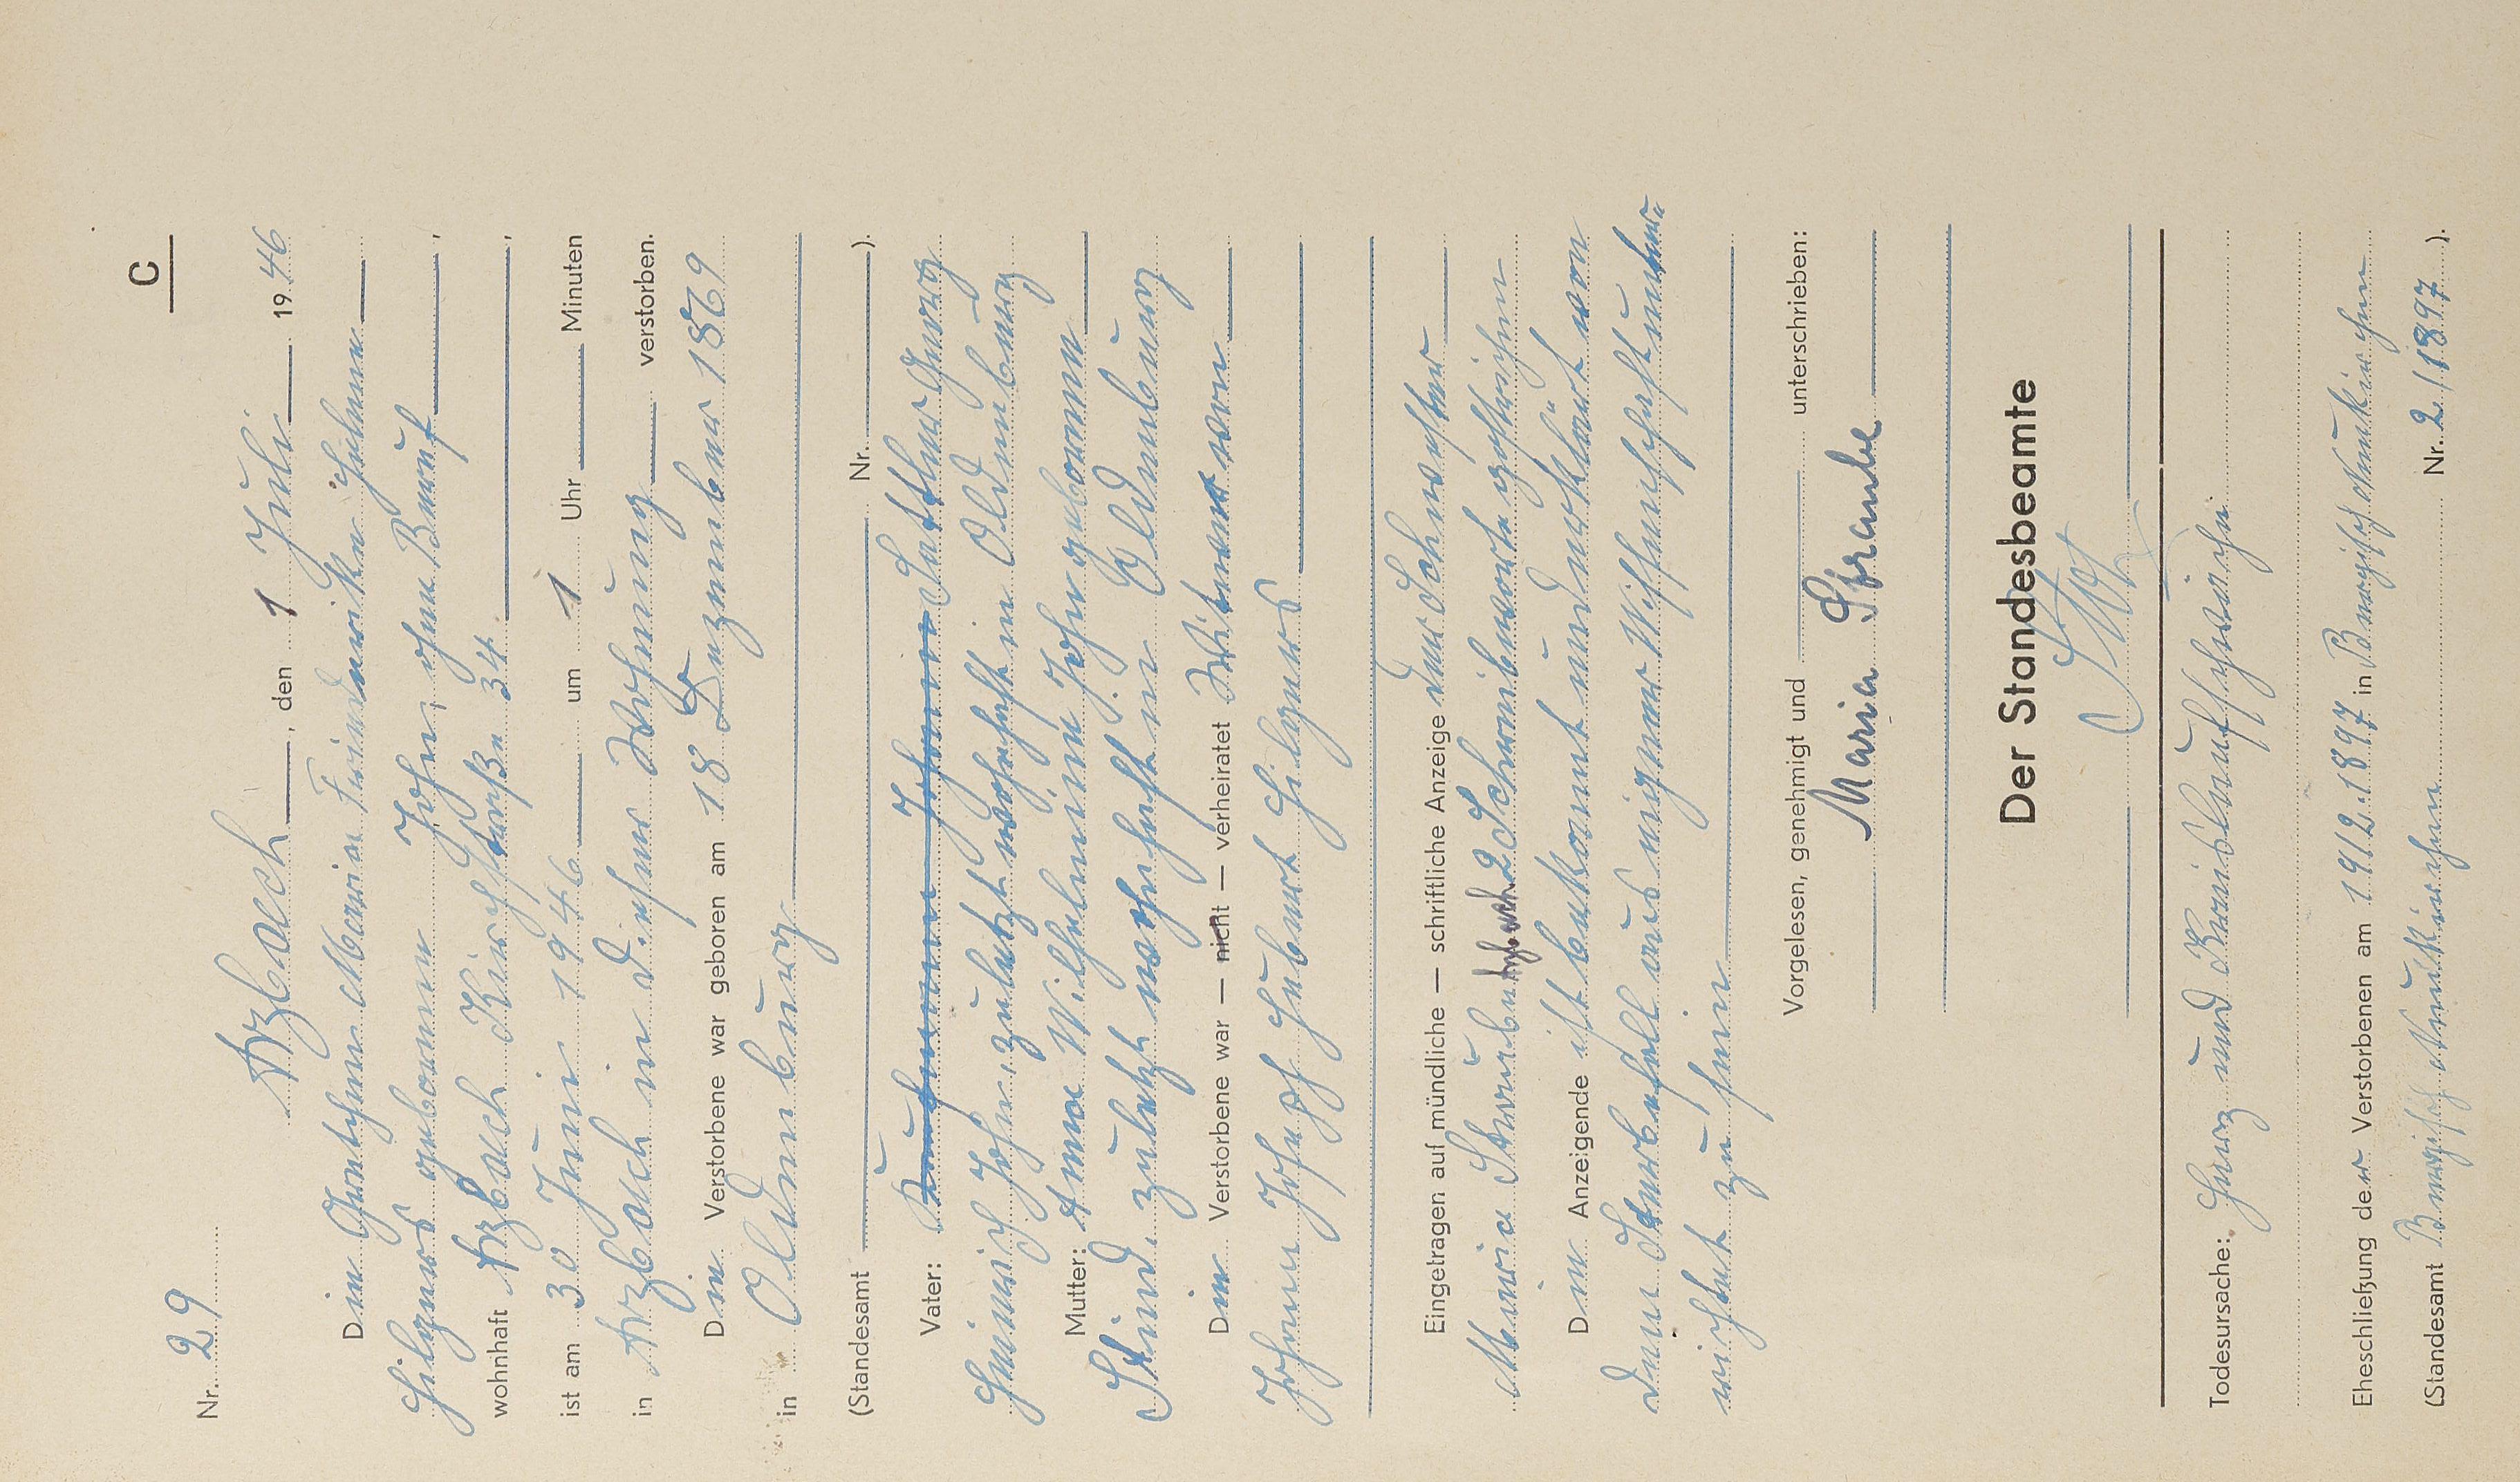 C
Nr. 29
Arzbach, den 1 Juli 1946
Die Gretchen Maria Friederike Helene
Hilgers geborenen Johen, ohne Beruf,
wohnhaft Arzbach Kirchstraße 34,
ist am 30 Juni 1946 um 1 Uhr Minuten
in Arzbach in dieser Wohnung verstorben.
Die Verstorbene war geboren am 18 Dezember 1869
in Oldenburg
(Standesamt Nr. ).
Vater: Sattler Georg
Heinrich Johen, zuletzt wohnhaft in Oldenburg
Mutter: Anna Wilhelmine Johen geborenen
Stind, zuletzt wohnhaft in Oldenburg
Die Verstorbene war — nicht — verheiratet Witwe von
Johann Joseph Hubert Hilgers
Eingetragen auf mündliche — schriftliche Anzeige der Schwester
Maria Straube 2 Schreibworte gestrichen
Die Anzeigende ist bekannt und erklärt von
dem Sterbefall aus eigener Wissenschaft unter-
richtet zu sein
Vorgelesen, genehmigt und unterschrieben:
Maria Straube
Der Standesbeamte
Todesursache: Herz und Kreislaufschwäche
Eheschließung der Verstorbenen am 19/2.1897 in Bergisch Neukirchen
(Standesamt Bergisch Neukirchen Nr. 2/1897 ).